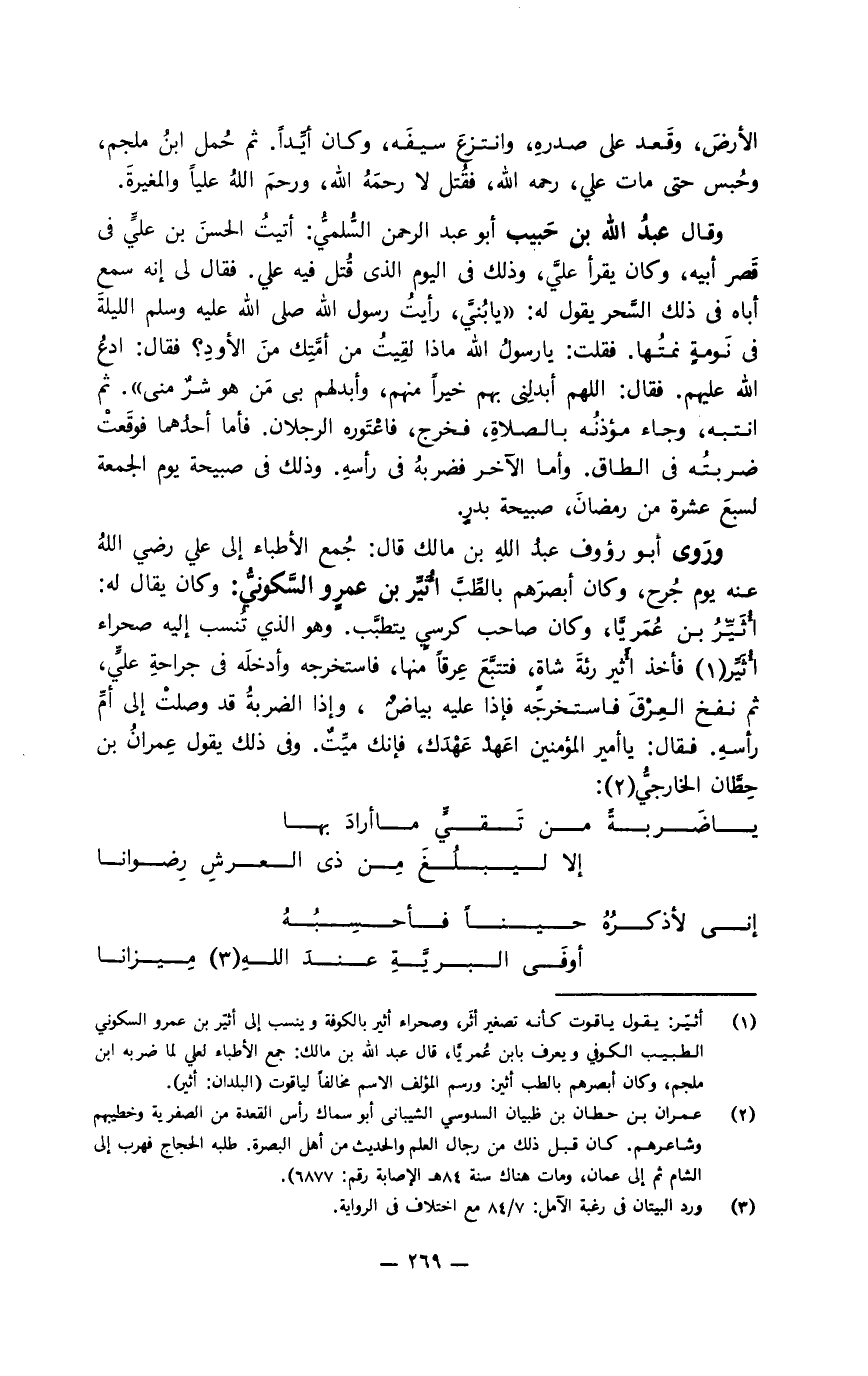 الأرضَ، وقَعد على صدرهِ، وانتزعَ سيفَه، وكان أيِّداً. ثم حُمل ابنُ ملجم،
وحُبس حتى مات علي، رحمه الله، فقُتل لا رحمَهُ الله، ورحمَ اللهُ علياً والمغيرةَ.
وقال عبدُ الله بن حَبيب أبو عبد الرحمن السُّلميُّ: أتيتُ الحسنَ بن عليٍّ فى
قَصر أبيه، وكان يقرأ عليَّ، وذلك فى اليوم الذى قُتل فيه علي. فقال لى إنه سمع
أباه فى ذلك السَّحر يقول له: «يابُنيَّ، رأيتُ رسول الله صلى الله عليه وسلم الليلةَ
فى نَومةٍ نمتُها. فقلت: يارسولُ الله ماذا لقِيتُ من أمَّتِك منَ الأودِ؟ فقال: ادعُ
الله عليهم. فقال: اللهم أبدلِنى بهم خيراً منهم، وأبدلهم بى مَن هو شرٌ منى». ثم
انتبه، وجاء مؤذنُه بالصلاةِ، فخرج، فاعْتَوره الرجلان. فأما أحدُهما فوقَعتْ
ضربتُه فى الطاق. وأما الآخر فضربهُ فى رأسهِ. وذلك فى صبيحة يوم الجمعة
لسبعَ عشرة من رمضانَ، صبيحة بدرٍ.
ورَوى أبو رؤوف عبدُ اللهِ بن مالك قال: جُمع الأطباء إلى علي رضي اللهُ
عنه يوم جُرح، وكان أبصرَهم بالطِّبَّ أُثَيِّر بن عمرٍو السَّكونيُّ: وكان يقال له:
أُثَيِّرُ بن عُمَريَّا، وكان صاحب كرسيٍ يتطبَّب. وهو الذي تُنسب إليه صحراء
أُثَيِّر(١) فأخذ أُثير رئةَ شاة، فتتبَّعَ عِرقاً منها، فاستخرجه وأدخلَه فى جراحةِ عليٍّ،
ثم نفخ العِرْقَ فاستخرجَه فإذا عليه بياضٌ ، وإذا الضربةُ قد وصلتْ إلى أمِّ
رأسهِ. فقال: ياأمير المؤمنين اعَهدْ عَهْدَك، فإنك ميِّتٌ. وفى ذلك يقول عِمرانُ بن
حِطَّان الخارجيُّ(٢):
ياضَربةً من تَقيٍّ ماأرادَ بها
إلا ليبلُغَ مِن ذى العرشِ رِضوانا
إنى لأذكرُهُ حيناً فأحسِبُهُ
أوفَى البريَّةِ عندَ اللهِ(٣) مِيزانا
(١) أثيّر: يقول ياقوت كأنه تصغير أثَر، وصحراء أثير بالكوفة وينسب إلى أثيّر بن عمرو السكوني
الطبيب الكوفي ويعرف بابن عُمريَّا، قال عبد الله بن مالك: جمع الأطباء لعلي لما ضربه ابن
ملجم، وكان أبصرهم بالطب أثير: ورسم المؤلف الاسم مخالفاً لياقوت (البلدان: أثير).
(٢) عمران بن حطان بن ظبيان السدوسي الشيبانى أبو سماك رأس القعدة من الصفرية وخطيبهم
وشاعرهم. كان قبل ذلك من رجال العلم والحديث من أهل البصرة. طلبه الحجاج فهرب إلى
الشام ثم إلى عمان، ومات هناك سنة ٨٤هـ الإصابة رقم: ٦٨٧٧).
(٣) ورد البيتان فى رغبة الآمل: ٨٤/٧ مع اختلاف فى الرواية.
— ٢٦٩ —